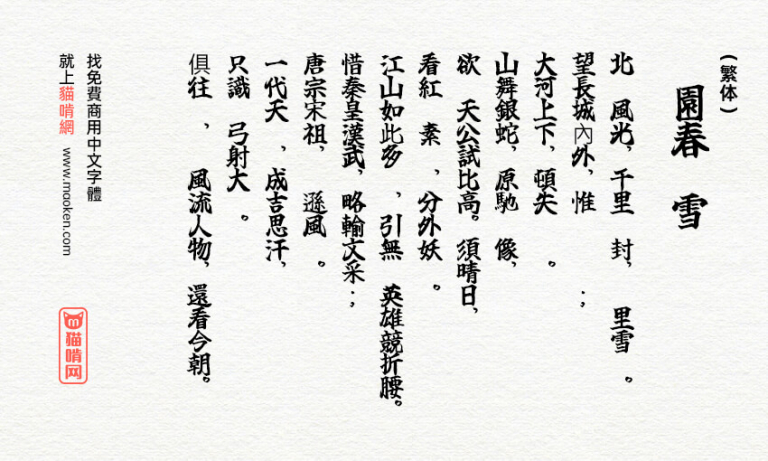 (繁体)
園春 雪
北 風光，千里 封， 里雪 。
望長城內外，惟 ；
大河上下，頓失 。
山舞銀蛇，原馳 像，
欲 天公試比高。須晴日，
看紅 素 ，分外妖 。
江山如此多 ，引無 英雄競折腰。
惜秦皇漢武，略輸文采；
唐宗宋祖， 遜風 。
一代天 ，成吉思汗，
只識 弓射大 。
俱往 ， 風流人物，還看今朝。
找免費商用中文字體
就上貓啃網 www.mooken.com
貓啃网